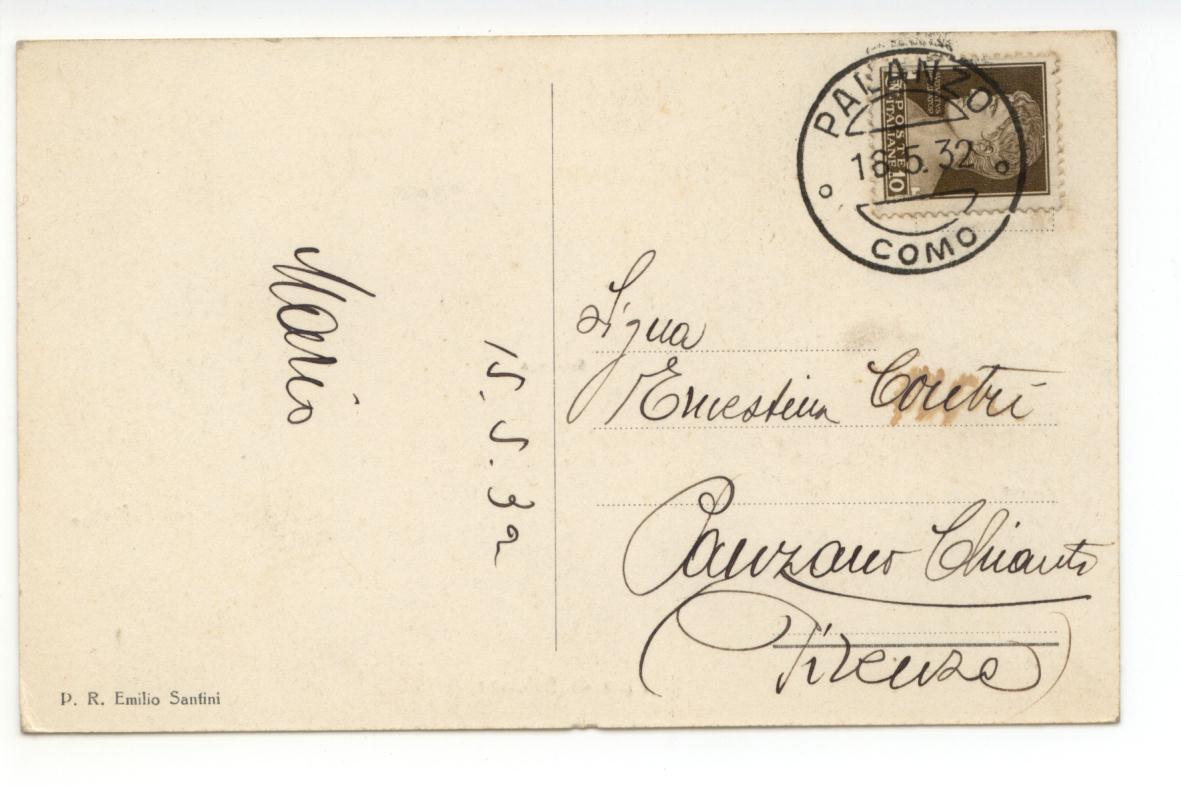 Mario
15.5.32
P. R. Emilio Santini
PALANZO
18.5.32
COMO
POSTE
ITALIANE
10
Signa
Ernestina Contri
Panzano Chianti
(Firenze)